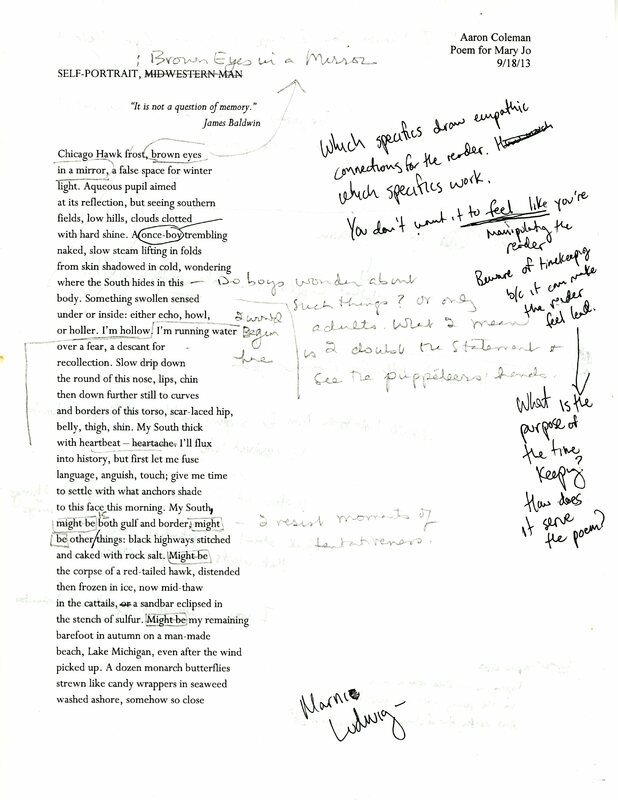 Aaron Coleman
Poem for Mary Jo
9/18/13
; Brown Eyes in a Mirror
SELF-PORTRAIT, MIDWESTERN MAN
"It is not a question of memory."
James Baldwin
Chicago Hawk frost, brown eyes
in a mirror, a false space for winter
light. Aqueous pupil aimed
at its reflection, but seeing southern
fields, low hills, clouds clotted
with hard shine. A once-boy trembling
naked, slow steam lifting in folds
from skin shadowed in cold, wondering
where the South hides in this
body. Something swollen sensed
under or inside: either echo, howl,
or holler. I'm hollow. I'm running water
over a fear, a descant for
recollection. Slow drip down
the round of this nose, lips, chin
then down further still to curves
and borders of this torso, scar-laced hip,
belly, thigh, shin. My South thick
with heartbeat – heartache. I'll flux
into history, but first let me fuse
language, anguish, touch; give me time
to settle with what anchors shade
to this face this morning. My South,
might be both gulf and border, might
be other things: black highways stitched
and caked with rock salt. Might be
the corpse of a red-tailed hawk, distended
then frozen in ice, now mid-thaw
in the cattails, or a sandbar eclipsed in
the stench of sulfur. Might be my remaining
barefoot in autumn on a man-made
beach, Lake Michigan, even after the wind
picked up. A dozen monarch butterflies
strewn like candy wrappers in seaweed
washed ashore, somehow so close
Which specifics draw empathic
connections for the reader.
which specifics work.
You don't want it to feel like you're
manipulating the
reader
Beware of timekeeping
b/c it can make
the reader
feel led.
What is the
purpose of
the time
keeping?
How does
it serve
the poem?
– Do boys wonder about
such things? or only
adults. What I mean
is I doubt the statement +
see the puppeteers' hands.
I would
Begin
here
is
– I resist moments of
tentativeness.
Marnie
Ludwig –